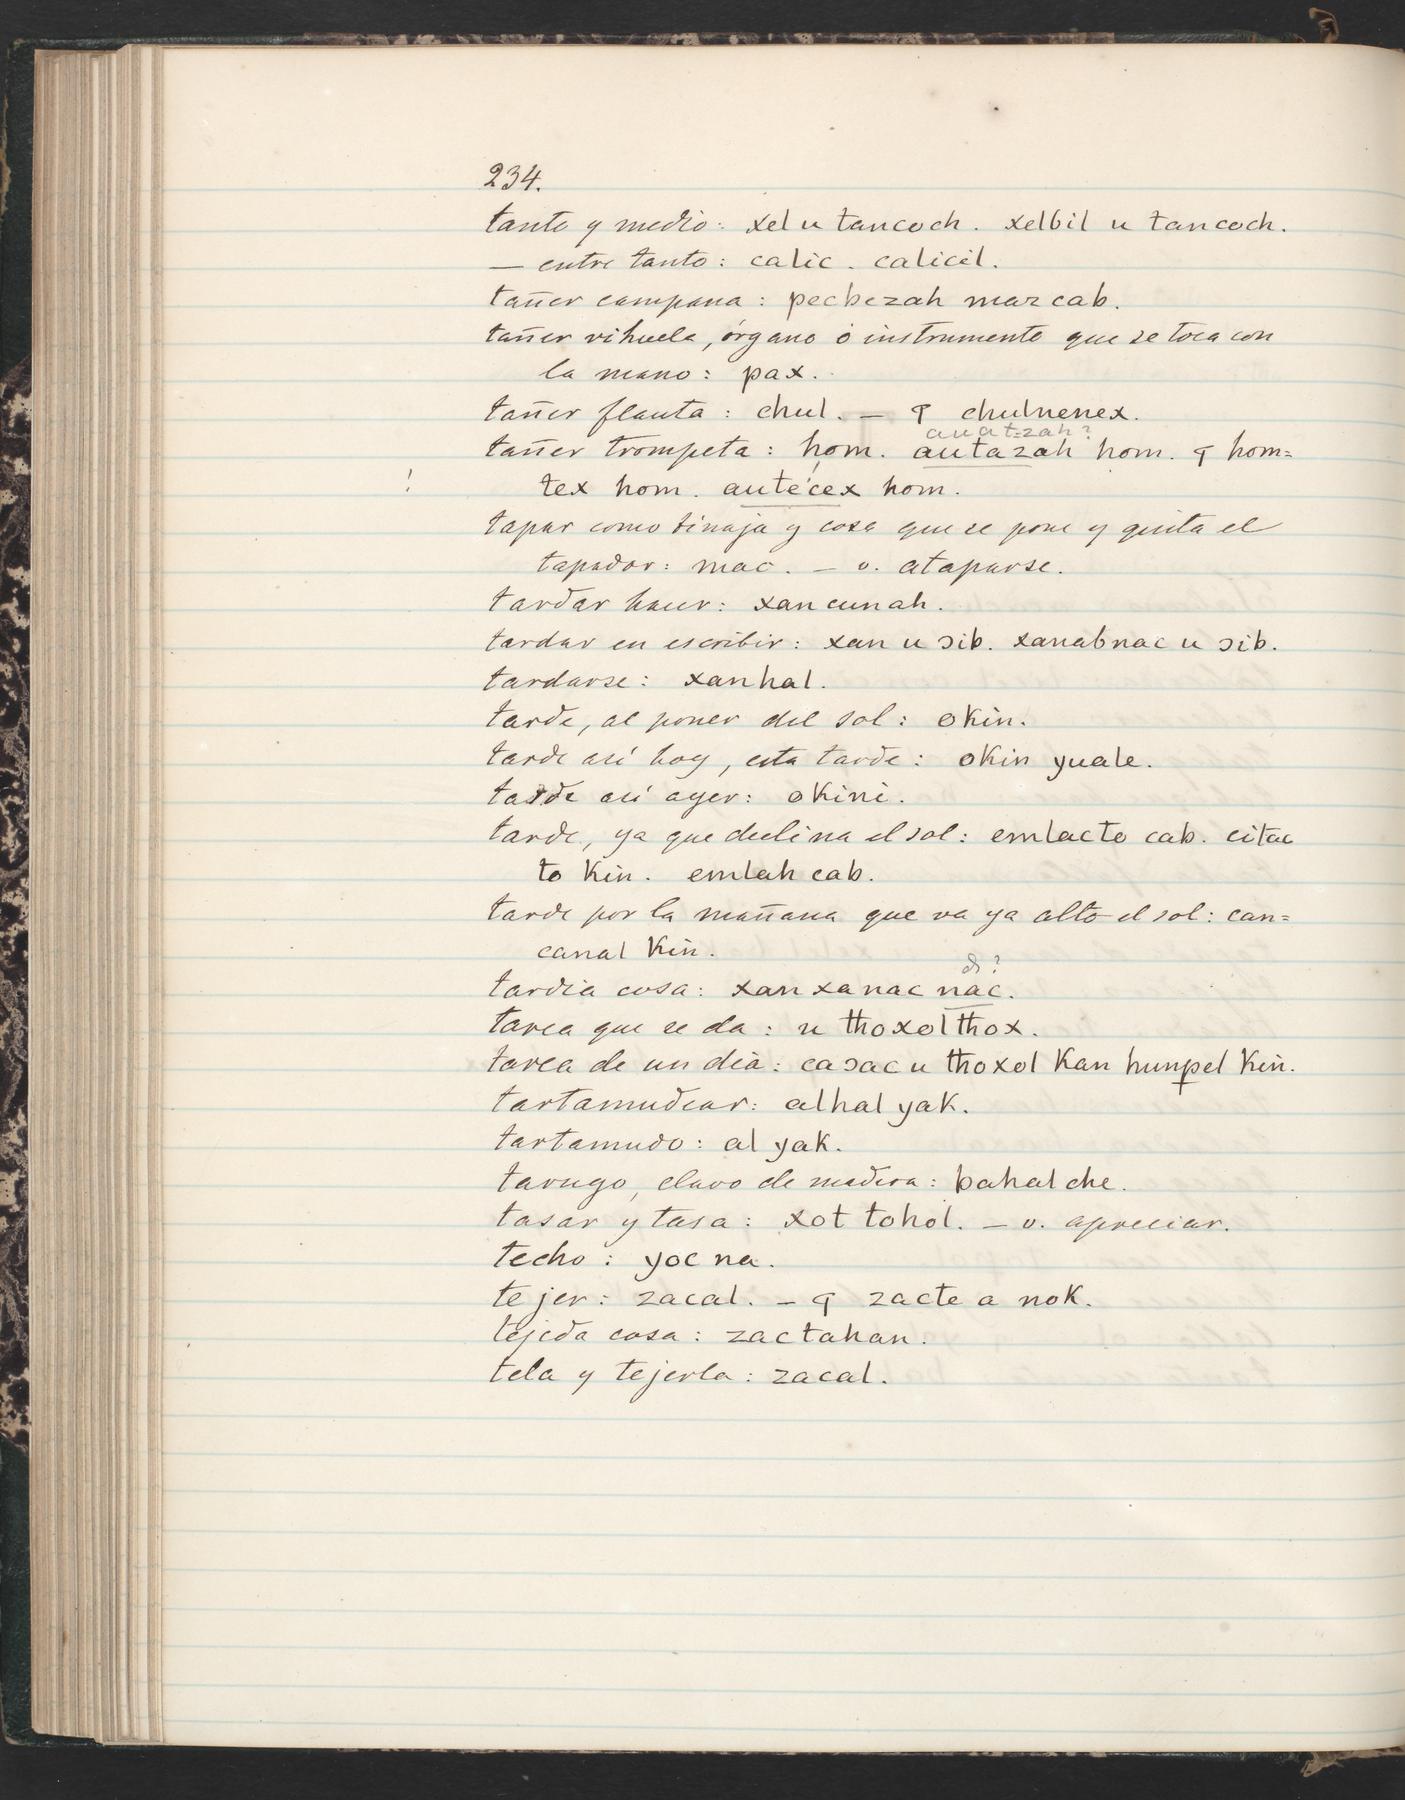 234.
tanto y medio: xel u tancoch. xelbil u tancoch.
— entre tanto: calic. calicil.
tañer campana: pecbezah mazcab.
tañer vihuela, órgano ó instrumento que se toca con
la mano: pax.
tañer flauta: chul. — ꟼ chulnenex.
auatzah?
tañer trompeta: hom. autazah hom. ꟼ hom=
! tex hom. autécex hom.
tapar como tinaja y cosa que se pone y quita el
tapador: mac. — v. ataparse.
tardar hacer: xancunah.
tardar en escribir: xan u ɔib. xanabnac u ɔib.
tardarse: xanhal.
tarde, al poner del sol: okin.
tarde así hoy, esta tarde: okin yuale.
tarde así ayer: okini.
tarde, ya que declina el sol: emlacto cab. citac
to kin. emlah cab.
tarde por la mañana que va ya alto el sol: can=
canal kin.
?
tardia cosa: xanxanac nac.
tarea que se da: u thoxolthox.
tarea de un dia: caɔac u thoxol kan hunpel kin.
tartamudear: alhal yak.
tartamudo: al yak.
tarugo, clavo de madera: bahal che.
tasar y tasa: xot tohol. — v. apreciar.
techo: yoc na.
tejer: zacal. — ꟼ zacte a nok.
tejida cosa: zactahan.
tela y tejerla: zacal.